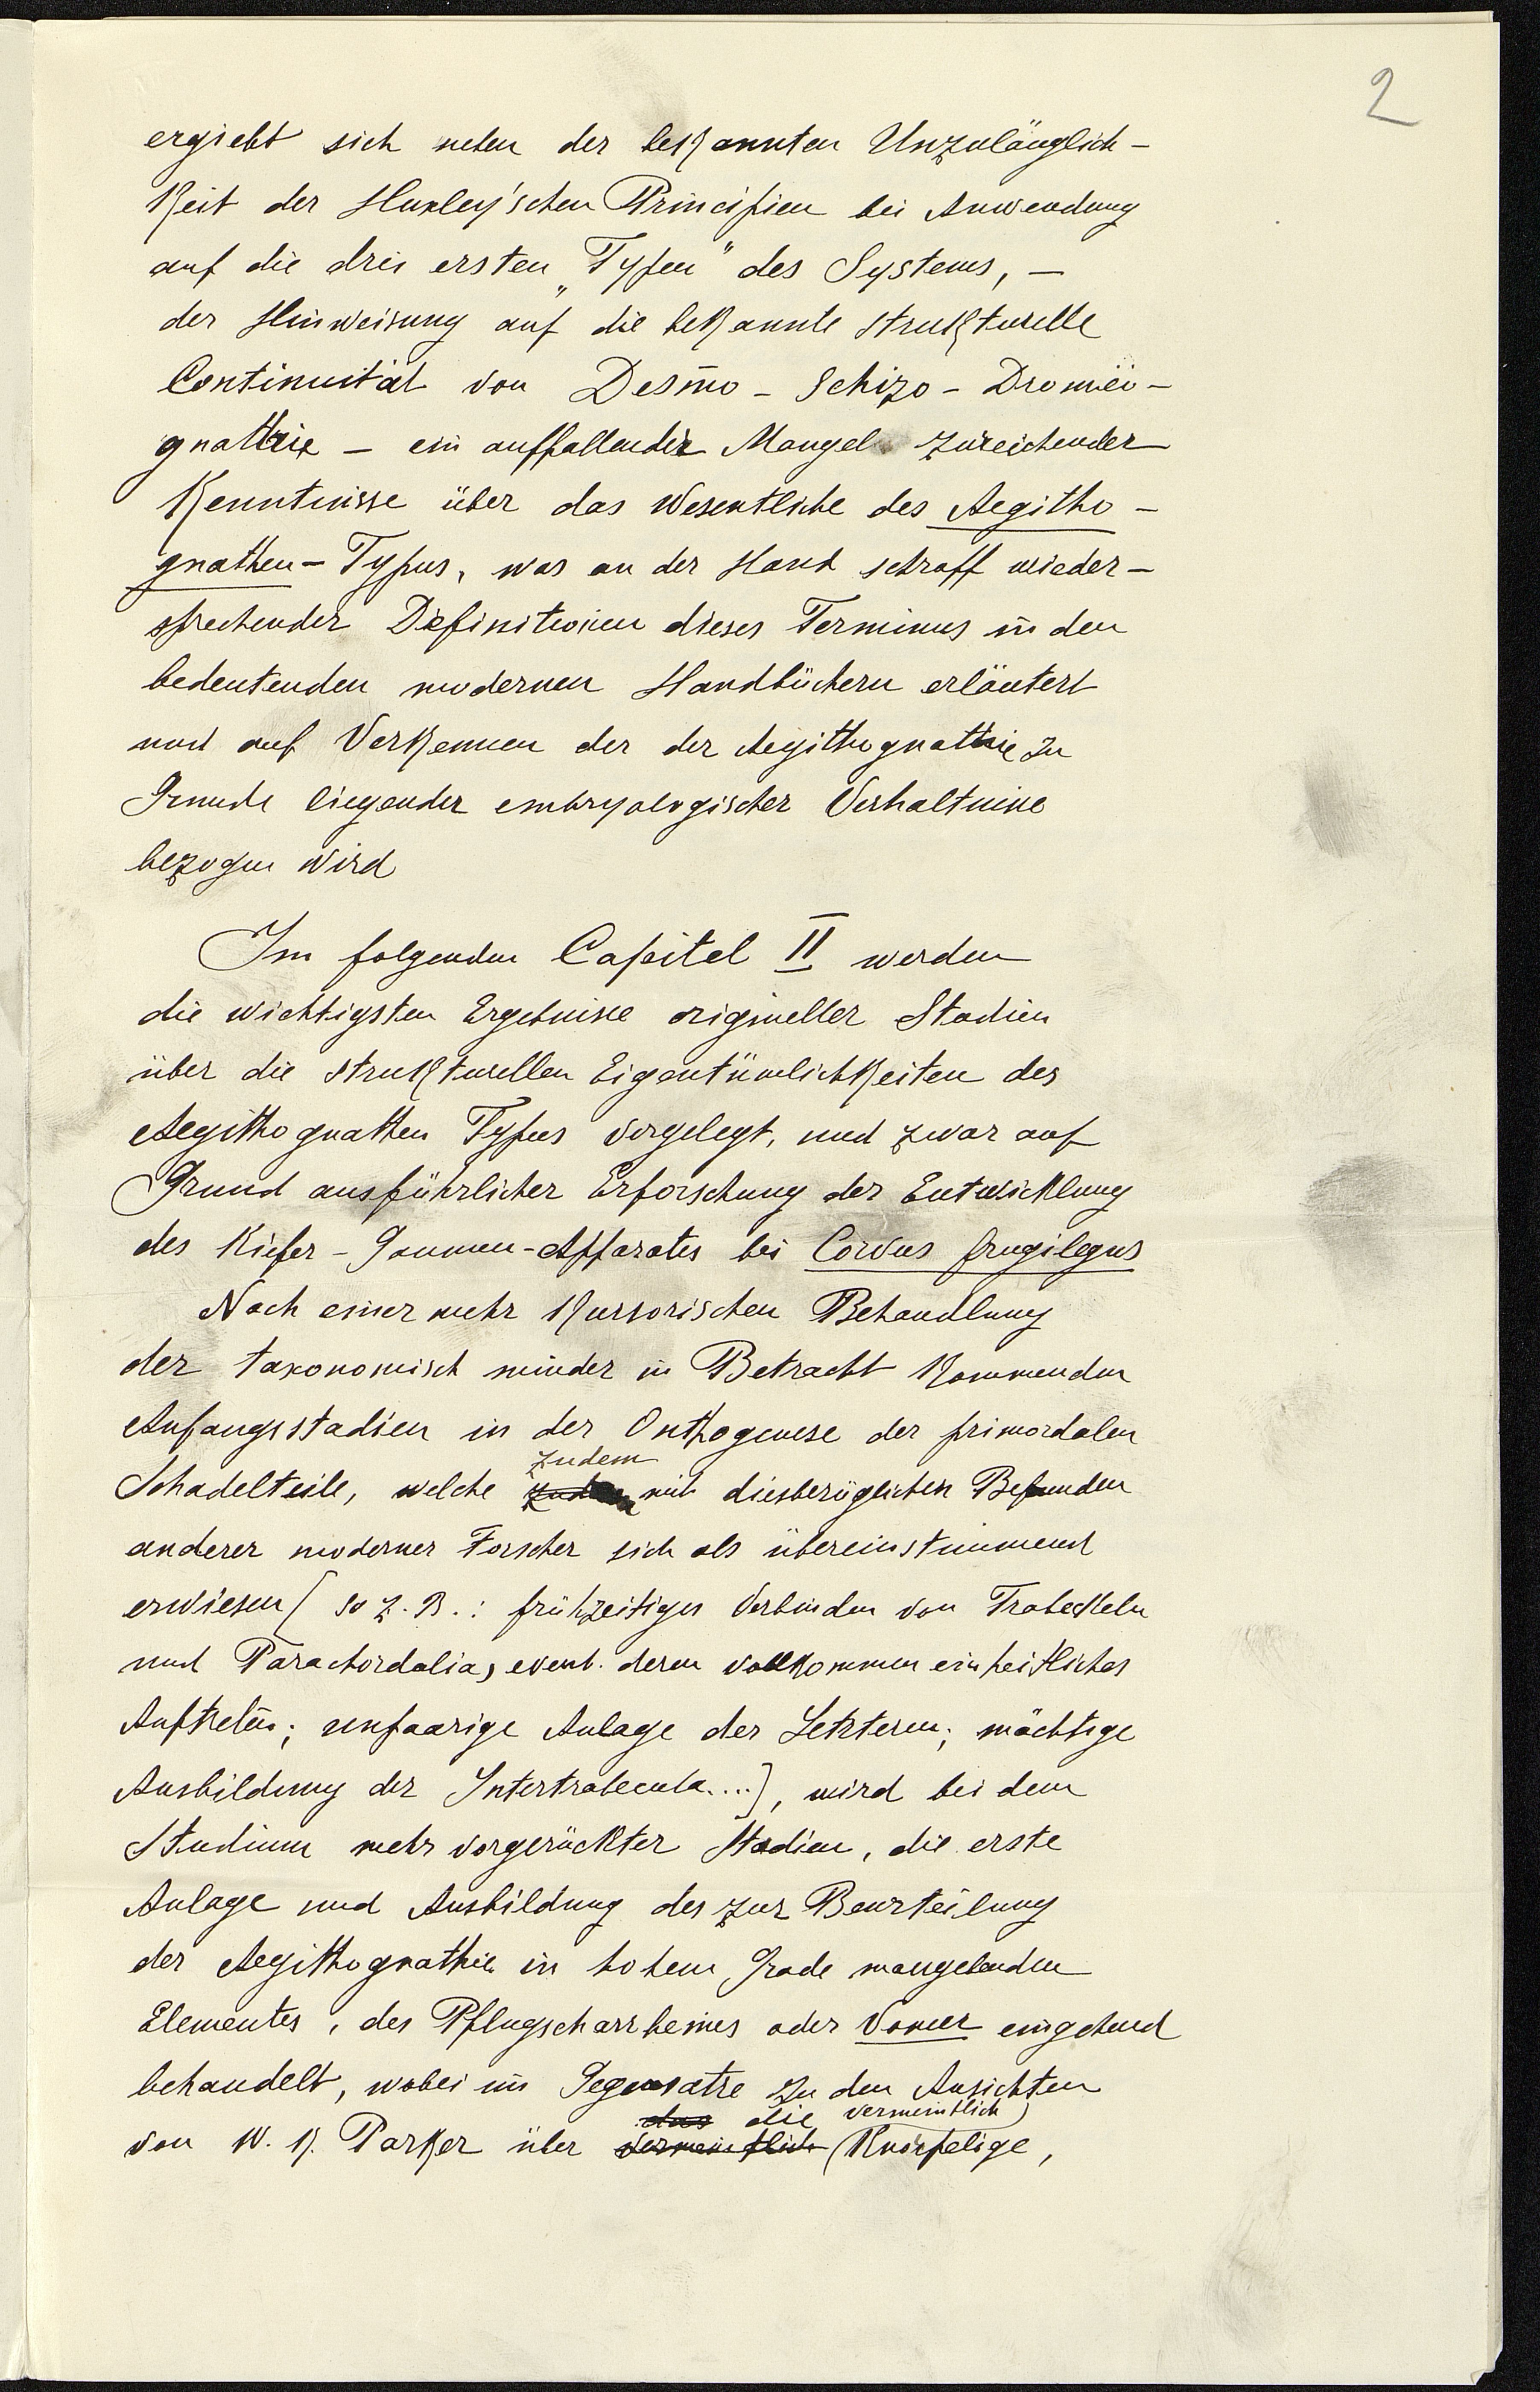 2
ergiebt sich neben der bekannten Unzulänglich-
keit der Huxley'schen Principien bei Anwendung
auf die drei ersten „Typen" des Systems, –
der Hinweisung auf die bekannte strukturelle
Continuität von Desmo – Schizo – Dromäo –
gnathie – ein auffallender Mangel zureichender
Kenntnisse über das Wesentliche des Aegitho –
gnathen – Typus, was an der Hand schroff wieder –
sprechender Definitionen dieses Terminus in den
bedeutenden modernen Handbüchern erläutert
und auf Verkennen der der Aegithognathie zu
Grunde liegender embryologischer Verhaltnisse
bezogen wird
Im folgenden Capitel II werden
die wichtigsten Ergebnisse origineller Studien
über die strukturellen Eigentümlichkeiten des
Aegithognathen Typus vorgelegt, und zwar auf
Grund ausführlicher Erforschung der Entwicklung
des Kiefer – Gaumen – Apparates bei Corvus frugilegus
Nach einer mehr kursorischen Behandlung
der taxonomisch minder in Betracht kommenden
Anfangsstadien in der Onthogenese der primordalen
zudem
Schadelteile, welche mit diesbezüglichen Befunden
anderer moderner Forscher sich als übereinstimmend
erwiesen [so z. B.: frühzeitiges Verbinden von Trabekeln
und Parachordalia, event. deren vollkommen einheitliches
Auftreten; unpaarige Anlage der Letzteren; mächtige
Ausbildung der Intertrabecula....], wird bei dem
Studium mehr vorgerückter Stadien, die erste
Anlage und Ausbildung des zur Beurteilung
der Aegithognathie in hohem Grade mangelnden
Elementes, des Pflugscharrbeines oder Vomer eingehend
behandelt, wobei im Gegensatze zu den Ansichten
das die vermeintlich
von W. K. Parker über vermeintlich Knorpelige,